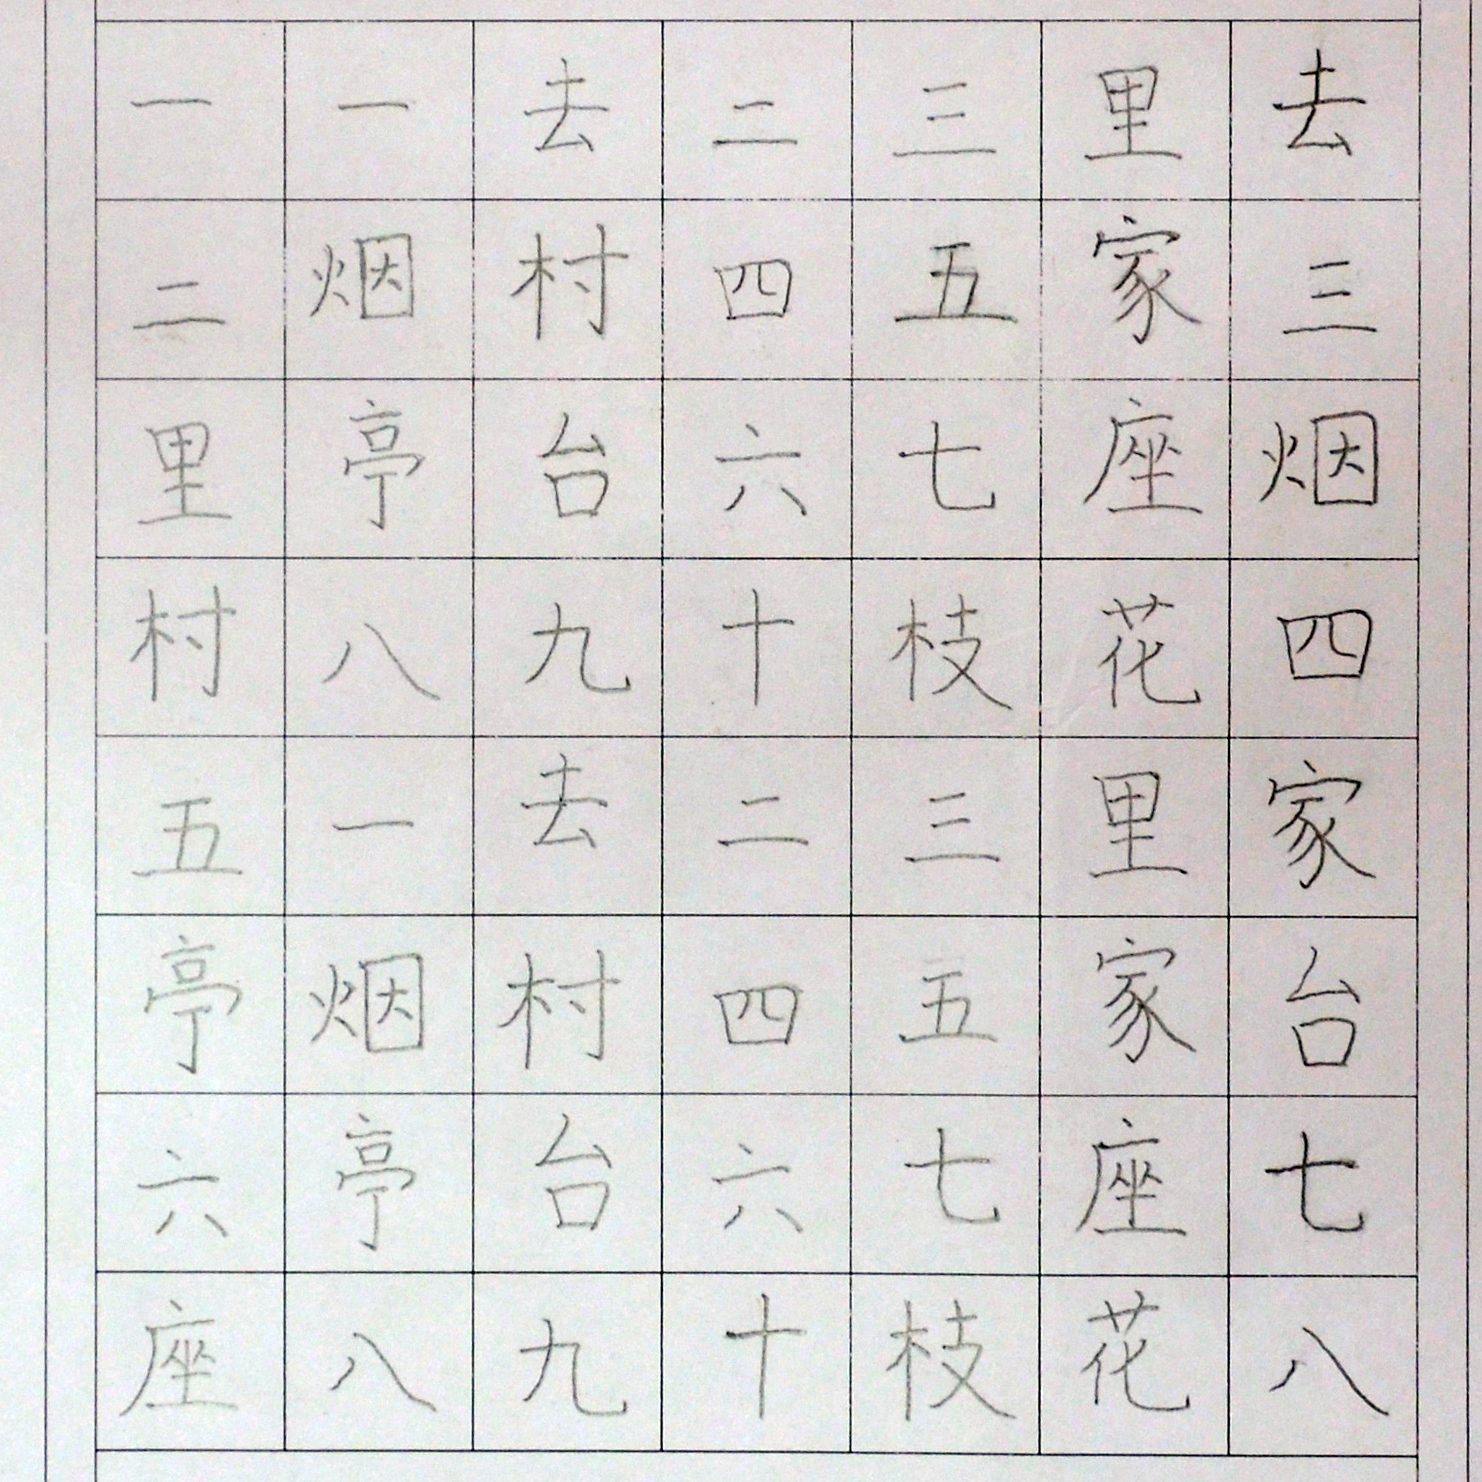 一一去二三里去
二烟村四五家三
里亭台六七座烟
村八九十枝花四
五一去二三里家
亭烟村四五家台
六亭台六七座七
座八九十枝花八